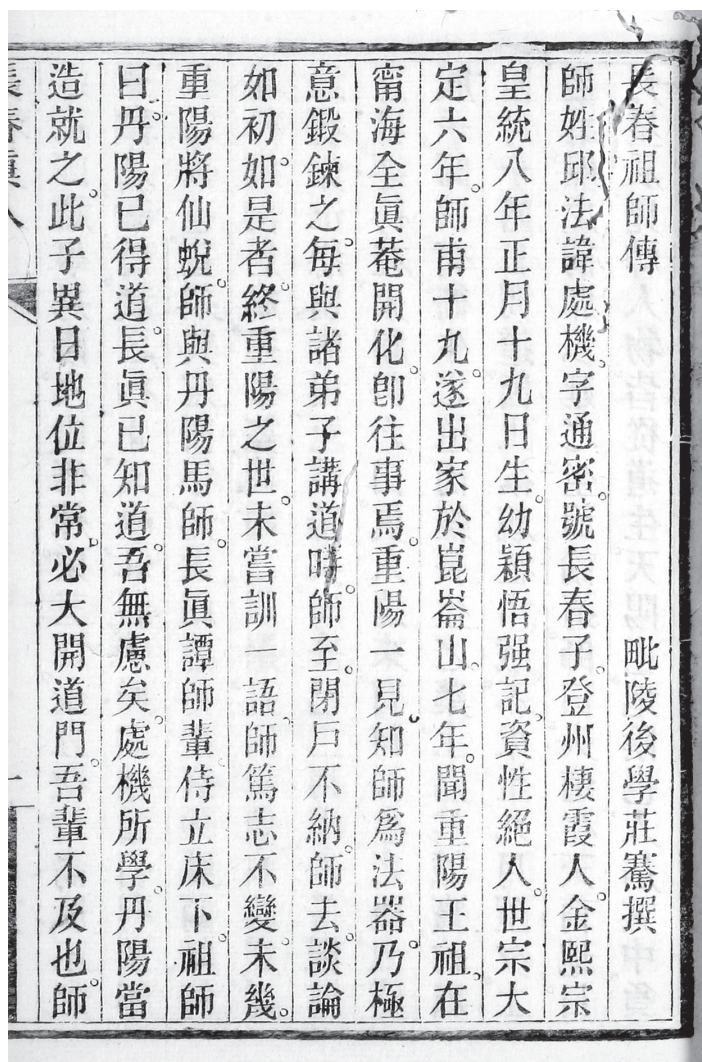 長春祖師傳　毗陵後學莊騫撰
師姓邱法諱處機。字通密。號長春子。登州棲霞人。金熙宗
皇統八年正月十九日生。幼穎悟强記。資性絕人。世宗大
定六年。師甫十九。遂出家於崑崙山。七年。聞重陽王祖。在
甯海全眞菴開化。卽往事焉。重陽一見。知師爲法器。乃極
意鍛鍊之。每與諸弟子講道時。師至。閉戸不納。師去。談論
如初。如是者。終重陽之世。未嘗訓一語。師篤志不變。未幾。
重陽將仙蛻。師與丹陽馬師。長眞譚師輩侍立床下。祖師
曰。丹陽已得道。長眞已知道。吾無慮矣。處機所學。丹陽當
造就之。此子異日地位非常。必大開道門。吾輩不及也。師
長春眞人